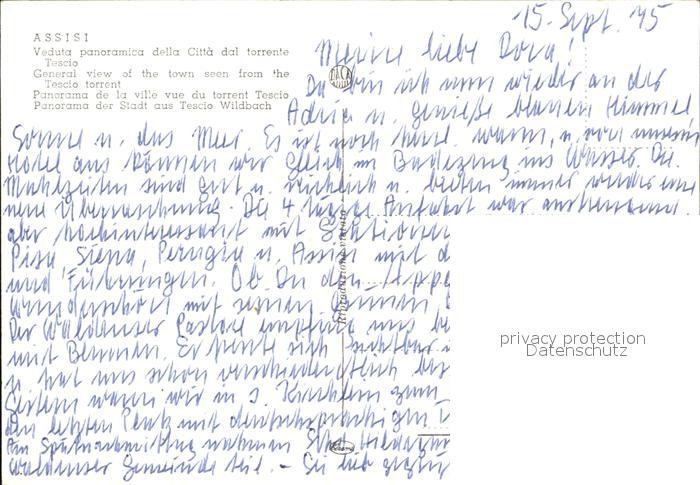 ASSISI
Veduta panoramica della Città dal torrente
Tescio
General view of the town seen from the
Tescio torrent
Panorama de la ville vue du torrent Tescio
Panorama der Stadt aus Tescio Wildbach
15. Sept. 75
Meine liebe Dora!
Da bin ich nun wieder an der
Adria u. genieße blauen Himmel
Sonne u. das Meer. Es ist noch herrl. warm, u. von unserm
Hotel aus können wir gleich im Badezeug ins Wasser. Die
Mahlzeiten sind gut u. reichlich u. bieten immer wieder eine
neue Überraschung. Die 4 tägige Anfahrt war anstrengend.
aber hochinteressant mit
Pisa, Siena, Perugia u. Assisi mit
und Führungen. Ob Du den
wunderschön mit seinen
Der Waldenser Pastore empfing uns
mit Blumen. Er freute sich sichtbar
u. hat uns schon verschiedentlich
Gestern waren wir in s. Kirchlein zum
den letzten Platz mit deutschsprachigen
Am Spätnachmittag nahmen
Waldenser Gemeinde teil. - Sei lieb gegrüß
privacy protection
Datenschutz